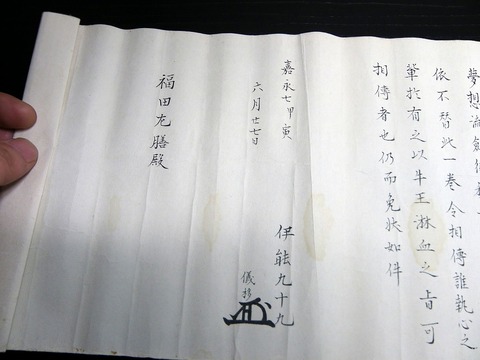 夢想流
依不替此一巻令相傳誰執心之
輩於有之以牛王淋血之上可
相傳者也仍而免状如件
嘉永七甲寅
六月廿七日
伊能九十九
儀
福田左膳殿